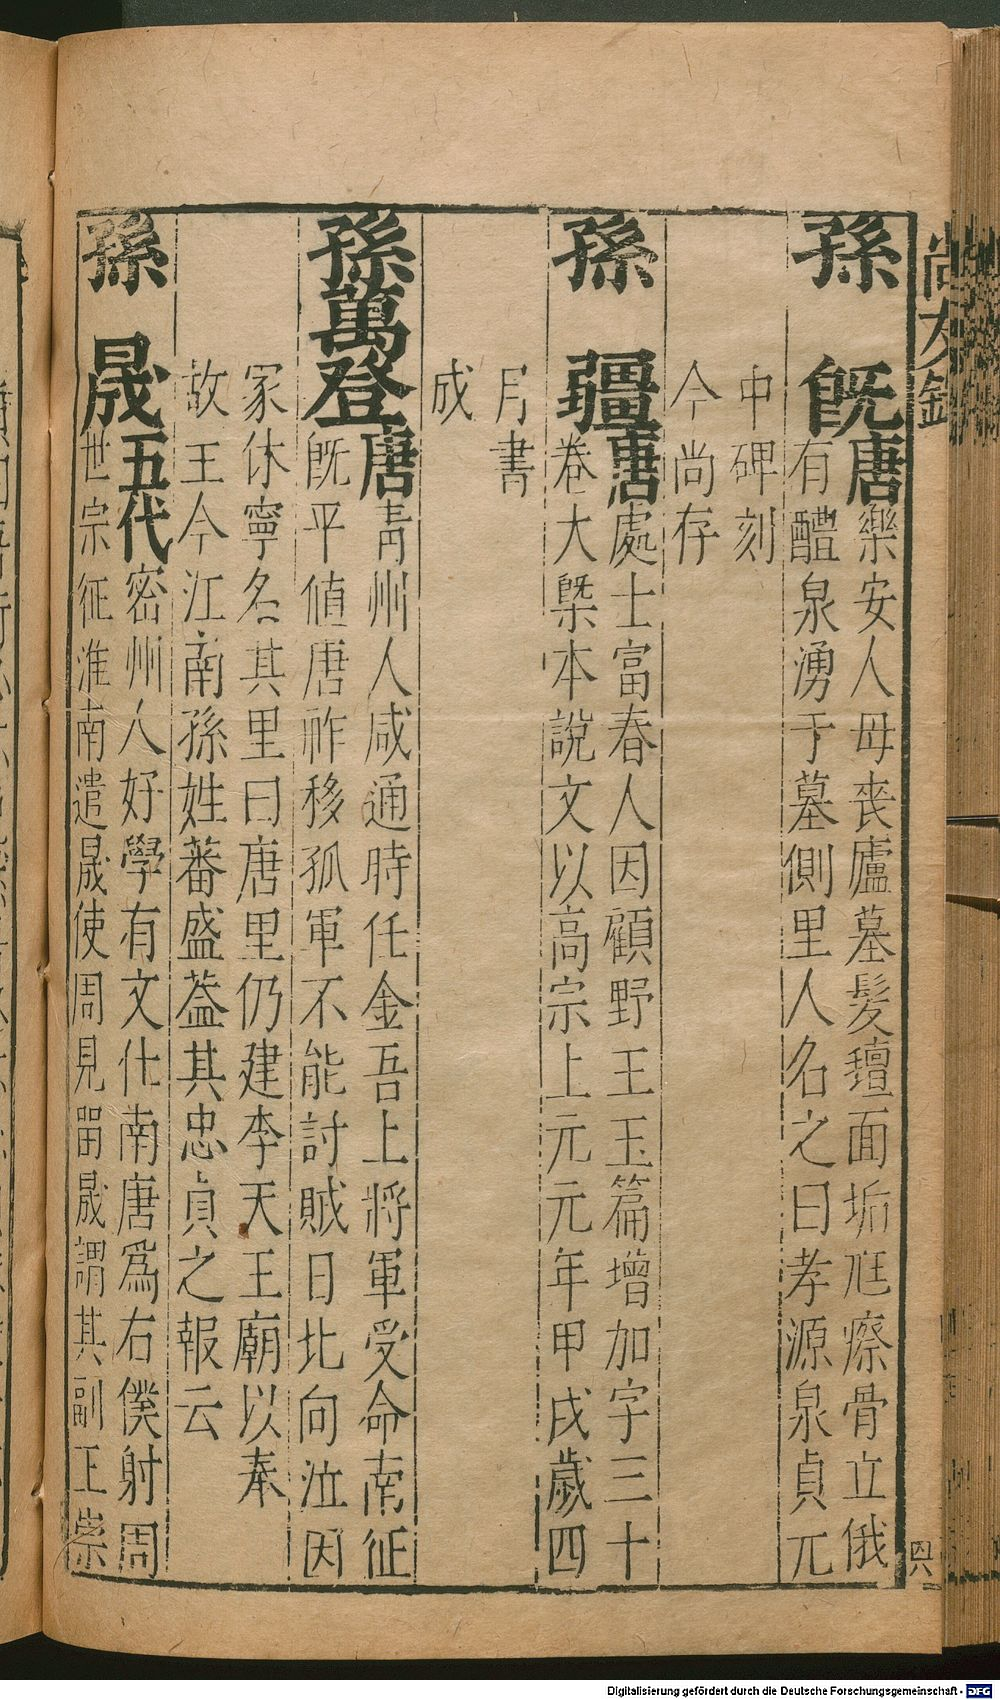 尚友錄
孫　旣唐樂安人母喪廬墓髮𭹹面垢尫瘵骨立俄
有醴泉湧于墓側里人名之曰孝源泉貞元
中碑刻
今尚存
孫　彊唐處士富春人因顧野王玉篇增加字三十
卷大槩本說文以高宗上元元年甲戌歲四
月書
成
孫萬登唐靑州人咸通時任金吾上將軍受命南征
旣平値唐祚移孤軍不能討賊日北向泣因
家休寧名其里曰唐里仍建李天王廟以奉
故王今江南孫姓蕃盛葢其忠貞之報云
孫　晟五代密州人好學有文仕南唐爲右僕射周
世宗征淮南遣晟使周見畱晟謂其副王崇
Digitalisierung gefördert durch die Deutsche Forschungsgemeinschaft - DFG